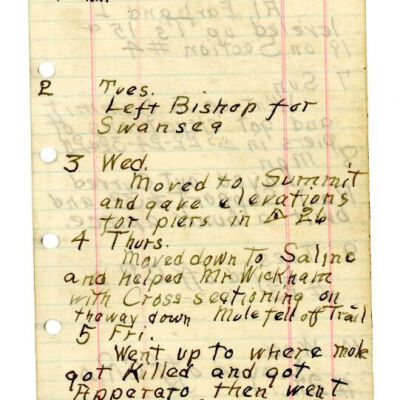 2 Tues.
Left Bishop for
Swansea
3 Wed.
Moved to Summit
and gave elevations
for piers in △ 26
4 Thurs.
Moved down To Saline
and helped Mr Wickham
with Cross-sectioning on
the way down Mule fell off Trail
5 Fri.
Went up to where mule
got Killed and got
Apperato then went